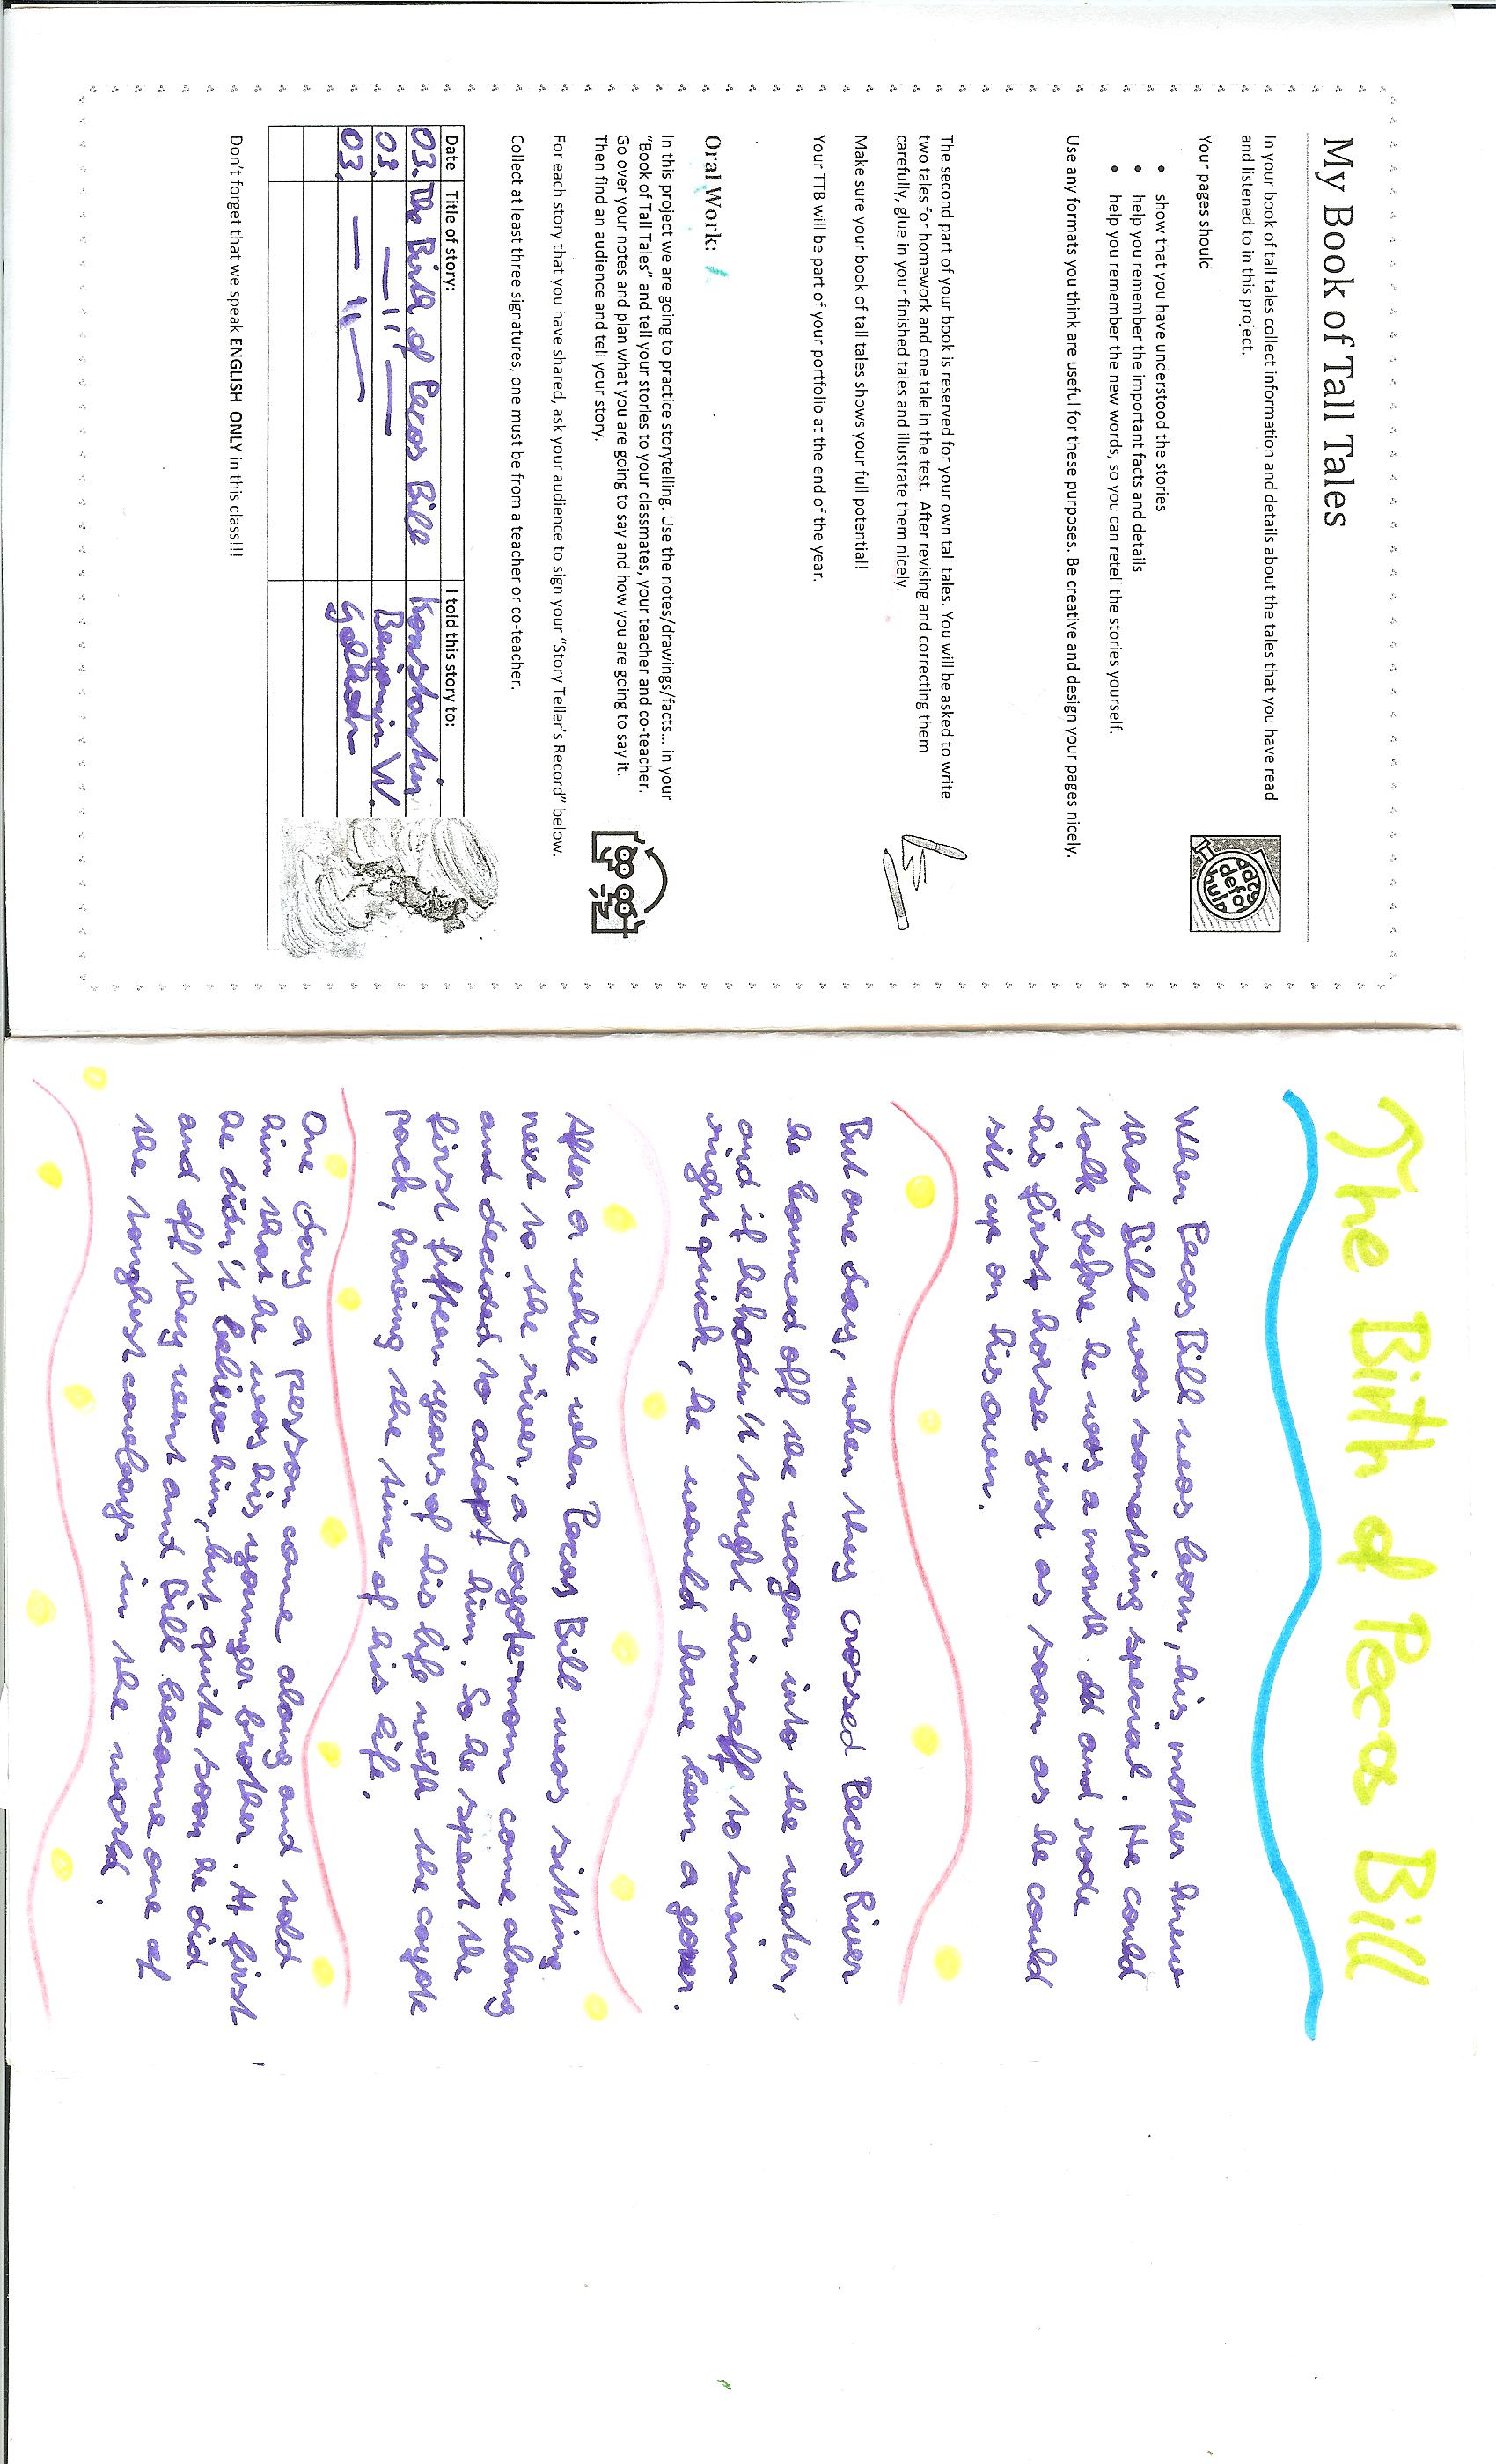 My Book of Tall Tales
In your book of tall tales collect information and details about the tales that you have read
and listened to in this project.
Your pages should
• show that you have understood the stories
• help you remember the important facts and details
• help you remember the new words, so you can retell the stories yourself.
Use any formats you think are useful for these purposes. Be creative and design your pages nicely.
The second part of your book is reserved for your own tall tales. You will be asked to write
two tales for homework and one tale in the test. After revising and correcting them
carefully, glue in your finished tales and illustrate them nicely.
Make sure your book of tall tales shows your full potential!
Your TTB will be part of your portfolio at the end of the year.
Oral Work:
In this project we are going to practice storytelling. Use the notes/drawings/facts... in your
"Book of Tall Tales" and tell your stories to your classmates, your teacher and co-teacher.
Go over your notes and plan what you are going to say and how you are going to say it.
Then find an audience and tell your story.
For each story that you have shared, ask your audience to sign your "Story Teller's Record" below.
Collect at least three signatures, one must be from a teacher or co-teacher.
Date Title of story: I told this story to:
03. The Birth of Pecos Bill Konstantin
03. —"— Benjamin W.
03. —"—
Don't forget that we speak ENGLISH ONLY in this class!!!
The Birth of Pecos Bill
When Pecos Bill was born, his mother knew
that Bill was something special. He could
talk before he was a month old and rode
his first horse just as soon as he could
sit up on his own.
But one day, when they crossed Pecos River
he bounced off the wagon into the water,
and if he hadn't tought himself to swim
right quick, he would have been a goner.
After a while when Pecos Bill was sitting
next to the river, a coyote-mom came along
and decided to adopt him. So he spent the
first fifteen years of his life with the coyote
pack, having the time of his life.
One day a person came along and told
him that he was his younger brother. At first
he didn't believe him, but quite soon he did
and off they went and Bill became one of
the toughest cowboys in the world.